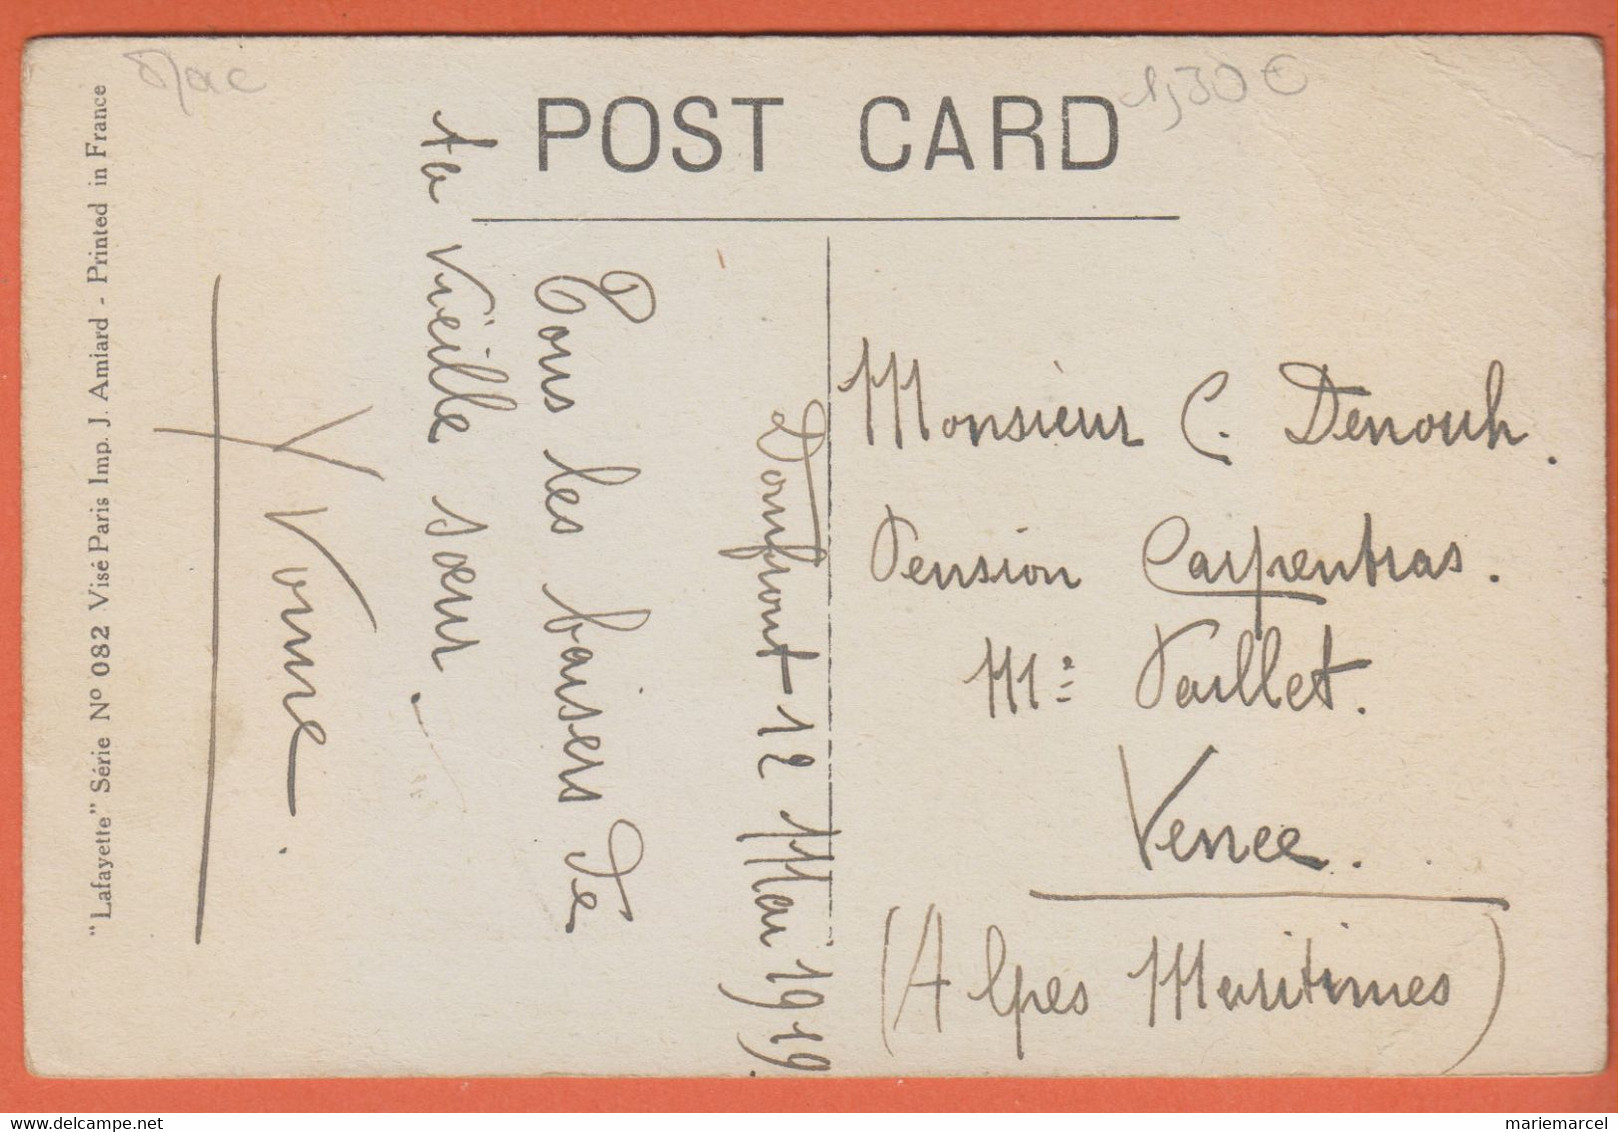 1,30 €
POST CARD
"Lafayette" Série Nº 082 Visé Paris Imp. J. Amiard - Printed in France
Domfront 12 Mai 1919.
Tous les baisers de
ta vieille sœur.
Yvonne.
Monsieur C. Denouh.
Pension Carpentras.
Mr Paillet.
Vence.
(Alpes Maritimes)
mariemarcel